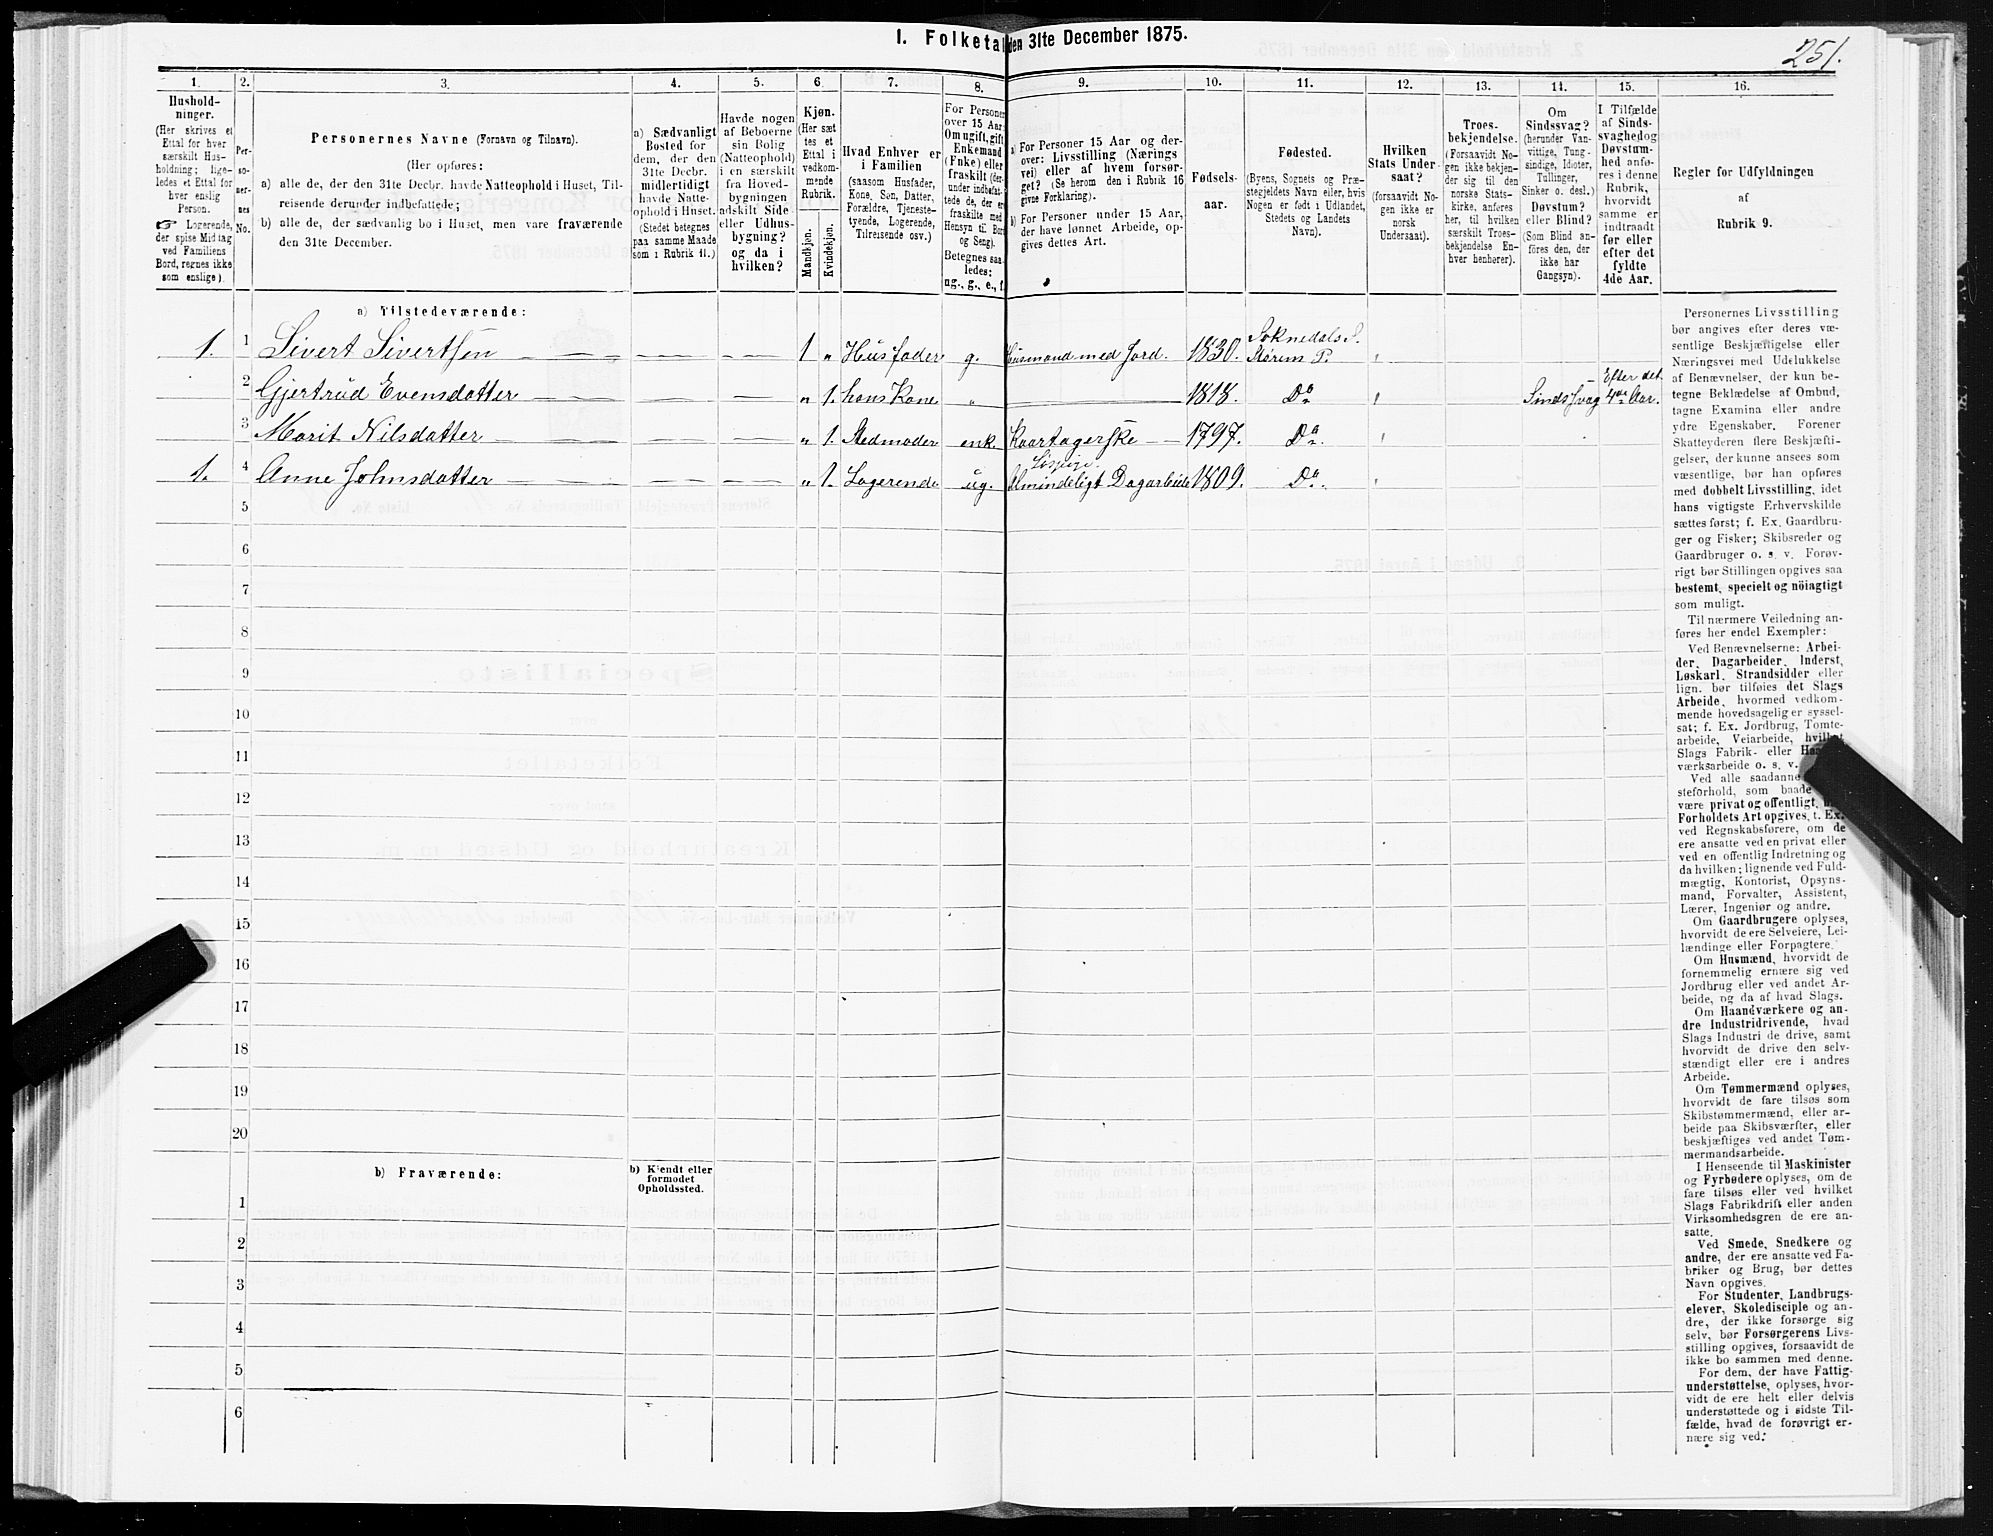 I. Folketal den 31te December 1875.
251.
1.
2.
3.
4.
5.
6.
7.
8.
9.
10.
11.
12.
13.
14.
15.
16.
Hushold-
ninger.
(Her skrives et
Ettal for hver
særskilt Hus-
holdning; lige-
ledes et Ettal for
hver enslig
Person.
☞ Logerende,
der spise Middag
ved Familiens
Bord, regnes ikke
som enslige).
Per-
so-
ner-
nes
No.
Personernes Navne (Fornavn og Tilnavn).
(Her opføres:
a) alle de, der den 31te Decbr. havde Natteophold i Huset, Til-
reisende derunder indbefattede;
b) alle de, der sædvanlig bo i Huset, men vare fraværende
den 31te December.
a) Sædvanligt
Bosted for
dem, der den
31te Decbr.
midlertidigt
havde Natte-
ophold i Huset.
(Stedet betegnes
paa samme Maade
som i Rubrik 11.)
Havde nogen
af Beboerne
sin Bolig
(Natteophold)
i en særskilt
fra Hoved-
bygningen
adskilt Side-
eller Udhus-
bygning?
og da i
hvilken?
Kjøn.
(Her sæt-
tes et
Ettal i
vedkom-
mende
Rubrik.
Mandkjøn.
Kvindekjøn.
Hvad Enhver er
i Familien
(saasom Husfader,
Kone, Søn, Datter,
Forældre, Tjeneste-
tyende, Logerende,
Tilreisende osv.)
For Personer
over 15 Aar:
Om ugift, gift,
Enkemand
(Enke) eller
fraskilt (der-
under indbefat-
tede de, der er
fraskilte med
Hensyn til Bord
og Seng).
Betegnes saa-
ledes:
ug., g., e., f.
a) For Personer 15 Aar og der-
over: Livsstilling (Nærings-
vei) eller af hvem forsør-
get? (Se herom den i Rubrik 16
givne Forklaring).
b) For Personer under 15 Aar,
der have lønnet Arbeide, op-
gives dettes Art.
Fødsels-
aar.
Fødested.
(Byens, Sognets og Præ-
stegjeldets Navn eller, hvis
Nogen er født i Udlandet,
Stedets og Landets
Navn).
Hvilken
Stats Under-
saat?
(forsaavidt No-
gen ikke er
norsk
Undersaat).
Troes-
bekjendelse.
(Forsaavidt No-
gen ikke bekjen-
der sig til den
norske Stats-
kirke, anføres
her, til hvilken
særskilt Troes-
bekjendelse En-
hver henhører).
Om
Sindssvag?
(herunder Van-
vittige, Tung-
sindige, Idioter,
Tullinger,
Sinker o. desl.)
Døvstum?
eller Blind?
(Som Blind an-
føres den, der
ikke har
Gangsyn).
I Tilfælde
af Sinds-
svaghed og
Døvstum-
hed anfø-
res i denne
Rubrik,
hvorvidt
samme er
indtraadt
før eller
efter det
fyldte
4de Aar.
Regler for Udfyldningen
af
Rubrik 9.
a) Tilstedeværende:
1. 1 Sivert Sivertsen 1 „ Husfader g. Husmand med Jord. 1830. Soknedals S. Størens P.
2 Gjertrud Evensdatter „ 1. hans Kone „ 1818. Do Sindssvag Efter det 4de Aar.
3 Marit Nilsdatter „ 1. Stedmoder enk. Kaartagerske 1797. Do
1. 4 Anne Johnsdatter „ 1. Logerende ug. Løspige. Almindeligt Dagarbeide 1809. Do.
5
6
7
8
9
10
11
12
13
14
15
16
17
18
19
20
b) Fraværende:
b) Kjendt eller
formodet
Opholdssted.
1
2
3
4
5
6
Personernes Livsstilling
bør angives efter deres væ-
sentlige Beskjæftigelse eller
Næringsvei med Udelukkelse
af Benævnelser, der kun be-
tegne Beklædelse af Ombud,
tagne Examina eller andre
ydre Egenskaber. Forener
Skatteyderen flere Beskjæfti-
gelser, der kunne ansees som
væsentlige, bør han opføres
med dobbelt Livsstilling, idet
hans vigtigste Erhvervskilde
sættes først; f. Ex. Gaardbru-
ger og Fisker; Skibsreder og
Gaardbruger o. s. v. Forøv-
rigt bør Stillingen opgives saa
bestemt, specielt og nöiagtigt
som muligt.
Til nærmere Veiledning an-
føres her endel Exempler:
Ved Benævnelserne: Arbei-
der, Dagarbeider, Inderst,
Løskarl, Strandsidder eller
lign. bør tilføies det Slags
Arbeide, hvormed vedkom-
mende hovedsagelig er syssel-
sat; f. Ex. Jordbrug, Tomte-
arbeide, Veiarbeide, hvilket
Slags Fabrik- eller
værksarbeide o. s. v.
Ved alle saadanne
steforhold, som baade
være privat og offentligt,
Forholdets Art opgives, t. Ex.
ved Regnskabsførere, om de
ere ansatte ved en privat eller
ved en offentlig Indretning og
da hvilken; lignende ved Fuld-
mægtig, Kontorist, Opsyns-
mand, Forvalter, Assistent,
Lærer, Ingeniør og andre.
Om Gaardbrugere oplyses,
hvorvidt de ere Selveiere, Lei-
lændinge eller Forpagtere.
Om Husmænd, hvorvidt de
fornemmelig ernære sig ved
Jordbrug eller ved andet Ar-
beide, og da af hvad Slags.
Om Haandværkere og an-
dre Industridrivende, hvad
Slags Industri de drive, samt
hvorvidt de drive den selv-
stændigt eller ere i andres
Arbeide.
Om Tømmermænd oplyses,
hvorvidt de fare tilsøs som
Skibstømmermænd, eller ar-
beide paa Skibsværfter, eller
beskjæftiges ved andet Tøm-
mermandsarbeide.
I Henseende til Maskinister
og Fyrbødere oplyses, om de
fare tilsøs eller ved hvilket
Slags Fabrikdrift eller anden
Virksomhedsgren de ere an-
satte.
Ved Smede, Snedkere og
andre, der ere ansatte ved Fa-
briker og Brug, bør dettes
Navn opgives.
For Studenter, Landbrugs-
elever, Skoledisciple og an-
dre, der ikke forsørge sig
selv, bør Forsørgerens Livs-
stilling opgives, forsaavidt de
ikke bo sammen med denne.
For dem, der have Fattig-
understøttelse, oplyses, hvor-
vidt de ere helt eller delvis
understøttede og i sidste Til-
fælde, hvad de forøvrigt er-
nære sig ved.